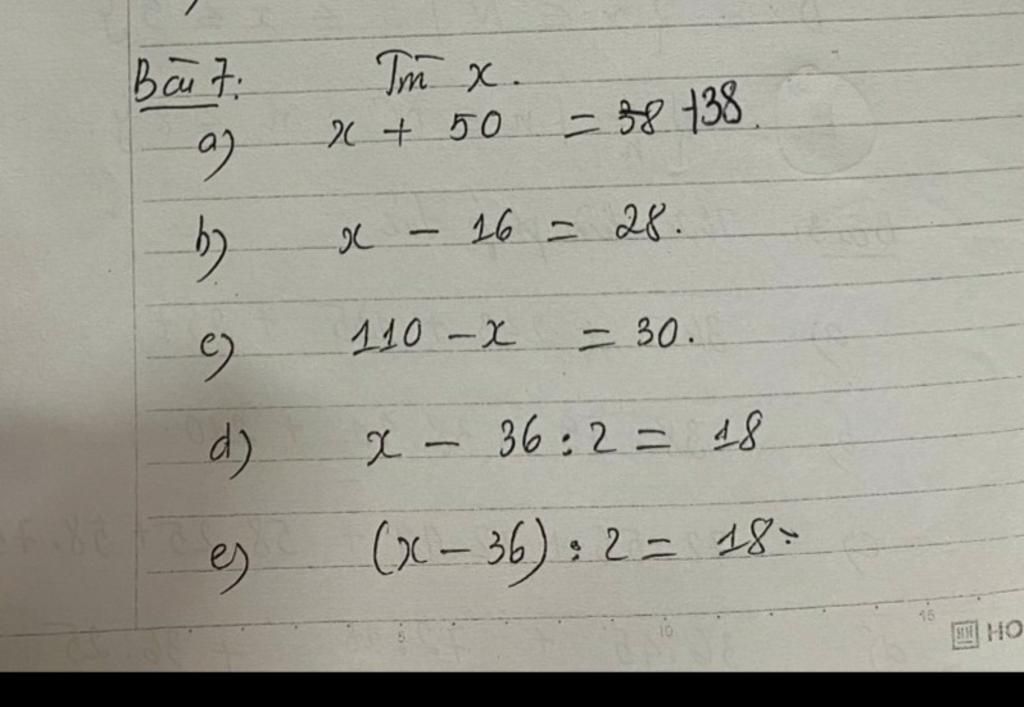 Bài 7: Tìm x.
a) x + 50 = 38 +38.
b) x - 16 = 28.
c) 110 - x = 30.
d) x - 36 : 2 = 18
e) (x - 36) : 2 = 18.
5 10 15
HO